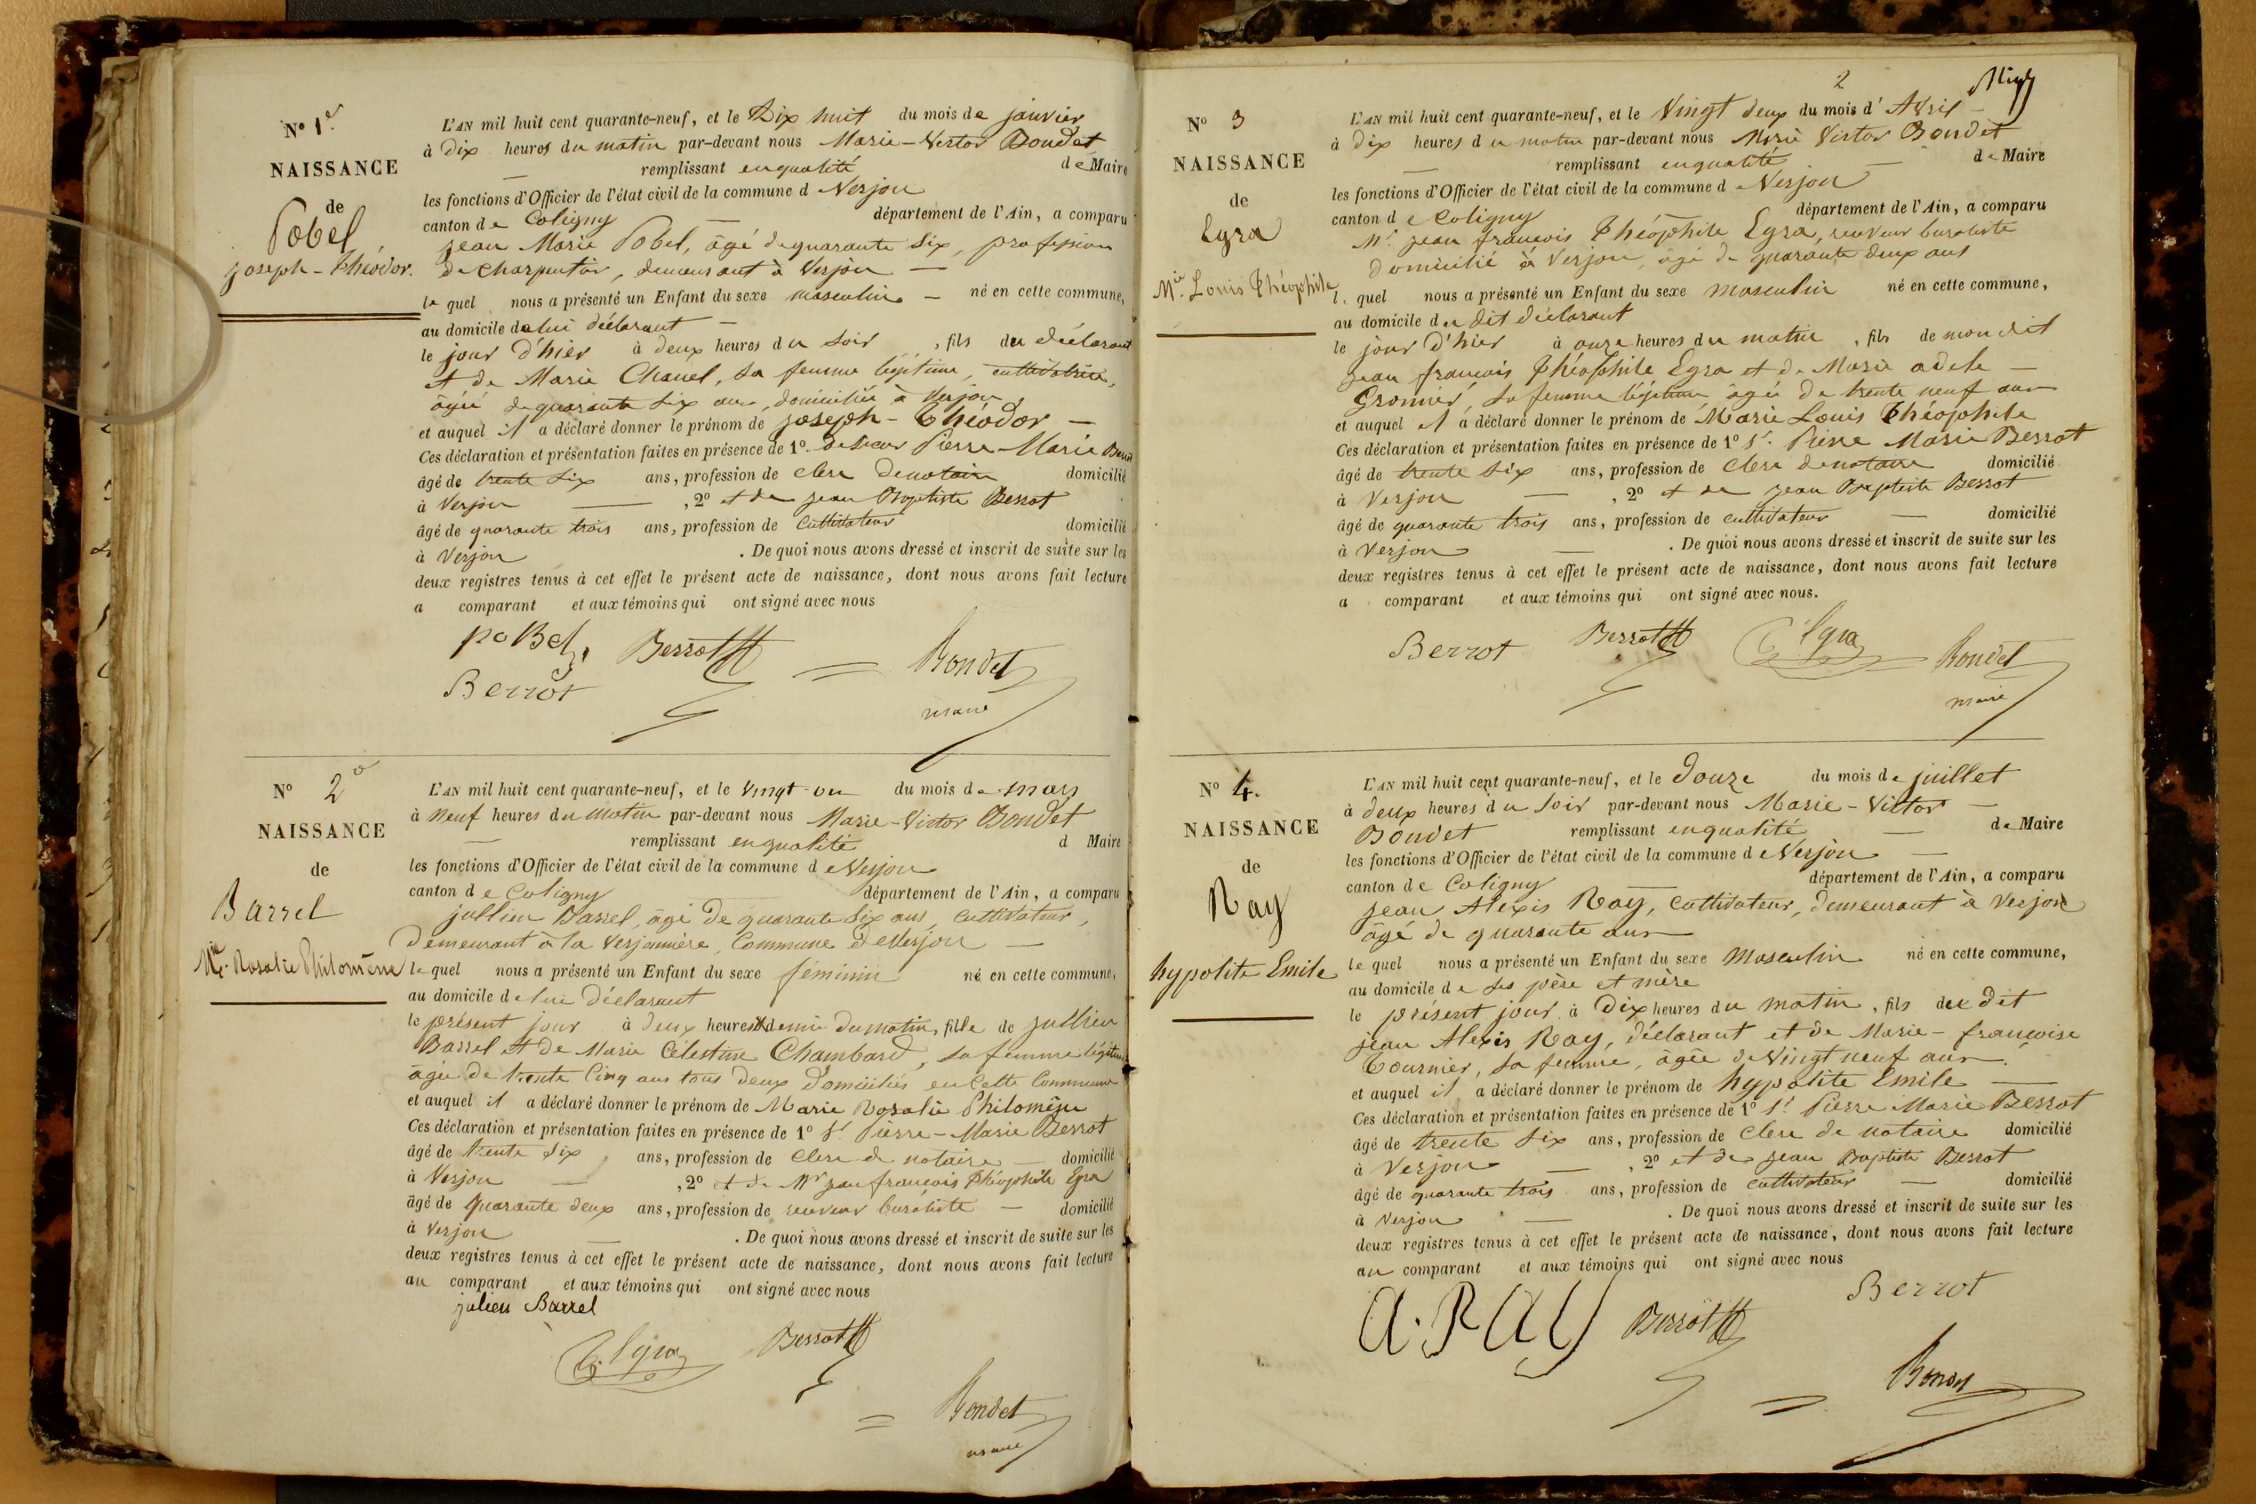 N° 1er
NAISSANCE
de
Pobel
joseph-Théodor.
L'AN mil huit cent quarante-neuf, et le Dix huit du mois de janvier
à Dix heures du matin par-devant nous Marie-Victor Boudet
remplissant en qualité de Maire
les fonctions d'Officier de l'état civil de la commune de Verjon
canton de Coligny département de l'Ain, a comparu
jean Marie Pobel, âgé de quarante six, profession
de charpentier, demeurant à Verjon —
le quel nous a présenté un Enfant du sexe masculin — né en cette commune,
au domicile de lui déclarant —
le jour d'hier à deux heures du soir, fils du déclarant
et de Marie Chanel, sa femme légitime, cultivatrice,
âgée de quarante six ans, domiciliée à Verjon,
et auquel il a déclaré donner le prénom de joseph-Théodor —
Ces déclaration et présentation faites en présence de 1° de sieur Pierre-Marie
âgé de trente six ans, profession de clerc de notaire domicilié
à Verjon —, 2° et de jean Baptiste Berrot
âgé de quarante trois ans, profession de Cultivateur domicilié
à Verjon. De quoi nous avons dressé et inscrit de suite sur les
deux registres tenus à cet effet le présent acte de naissance, dont nous avons fait lecture
a comparant et aux témoins qui ont signé avec nous
poBel, Berrot Boudet
Berrot maire
N° 2
NAISSANCE
de
Barrel
Mie Rosalie Philomène
L'AN mil huit cent quarante-neuf, et le Vingt-un du mois de mars
à Neuf heures du matin par-devant nous Marie-Victor Boudet
— remplissant en qualité d Maire
les fonctions d'Officier de l'état civil de la commune de Verjon
canton de Coligny département de l'Ain, a comparu
jullien Barrel, âgé de quarante six ans, cultivateur,
demeurant à la Verjonnière, Commune de Verjon —
le quel nous a présenté un Enfant du sexe féminin né en cette commune,
au domicile de lui Déclarant
le présent jour à deux heures et demie du matin, fille de jullien
Barrel et de Marie Célestine Chambard, sa femme légitime
âgée de trente Cinq ans tous deux domiciliés en Cette Commune
et auquel il a déclaré donner le prénom de Marie Rosalie Philomène
Ces déclaration et présentation faites en présence de 1° Sr Pierre-Marie Berrot
âgé de trente six ans, profession de clerc de notaire — domicilié
à Verjon —, 2° et de Mr jean françois Théophile Egra
âgé de quarante deux ans, profession de receveur buraliste — domicilié
à Verjon —. De quoi nous avons dressé et inscrit de suite sur les
deux registres tenus à cet effet le présent acte de naissance, dont nous avons fait lecture
au comparant et aux témoins qui ont signé avec nous
julien Barrel
Egra Berrot
Boudet
maire
2
N° 3
NAISSANCE
de
Egra
Mie Louis Théophile
L'AN mil huit cent quarante-neuf, et le Vingt deux du mois d'Avril —
à Dix heures du matin par-devant nous Marie Victor Boudet
— remplissant en qualité — de Maire
les fonctions d'Officier de l'état civil de la commune de Verjon
canton de Coligny département de l'Ain, a comparu
Mr jean françois Théophile Egra, receveur buraliste
domicilié à Verjon, âgé de quarante deux ans
le quel nous a présenté un Enfant du sexe masculin né en cette commune,
au domicile du dit déclarant
le jour d'hier à onze heures du matin, fils de mon dit
jean françois Théophile Egra et de Marie adele —
Gronier, sa femme légitime âgée de trente neuf ans
et auquel il a déclaré donner le prénom de Marie Louis Théophile
Ces déclaration et présentation faites en présence de 1° Sr Pierre Marie Berrot
âgé de trente six ans, profession de clerc de notaire domicilié
à Verjon —, 2° et de jean Baptiste Berrot
âgé de quarante trois ans, profession de cultivateur — domicilié
à Verjon —. De quoi nous avons dressé et inscrit de suite sur les
deux registres tenus à cet effet le présent acte de naissance, dont nous avons fait lecture
a comparant et aux témoins qui ont signé avec nous.
Berrot Berrot Egra Boudet
maire
N° 4.
NAISSANCE
de
Ray
hypolite Emile
L'AN mil huit cent quarante-neuf, et le Douze du mois de juillet
à deux heures du soir par-devant nous Marie-Victor —
Boudet remplissant en qualité — de Maire
les fonctions d'Officier de l'état civil de la commune de Verjon —
canton de Coligny département de l'Ain, a comparu
jean Alexis Ray, cultivateur, demeurant à Verjon
âgé de quarante ans
le quel nous a présenté un Enfant du sexe Masculin né en cette commune,
au domicile de ses père et mère
le présent jour à Dix heures du matin, fils du dit
jean Alexis Ray, déclarant et de Marie-françoise
Tournier, sa femme, âgée de Vingt neuf ans.
et auquel il a déclaré donner le prénom de hypolite Emile —
Ces déclaration et présentation faites en présence de 1° Sr Pierre Marie Berrot
âgé de trente six ans, profession de clerc de notaire domicilié
à Verjon —, 2° et de jean Baptiste Berrot
âgé de quarante trois ans, profession de cultivateur — domicilié
à Verjon —. De quoi nous avons dressé et inscrit de suite sur les
deux registres tenus à cet effet le présent acte de naissance, dont nous avons fait lecture
au comparant et aux témoins qui ont signé avec nous
A. RAY Berrot Berrot
Boudet